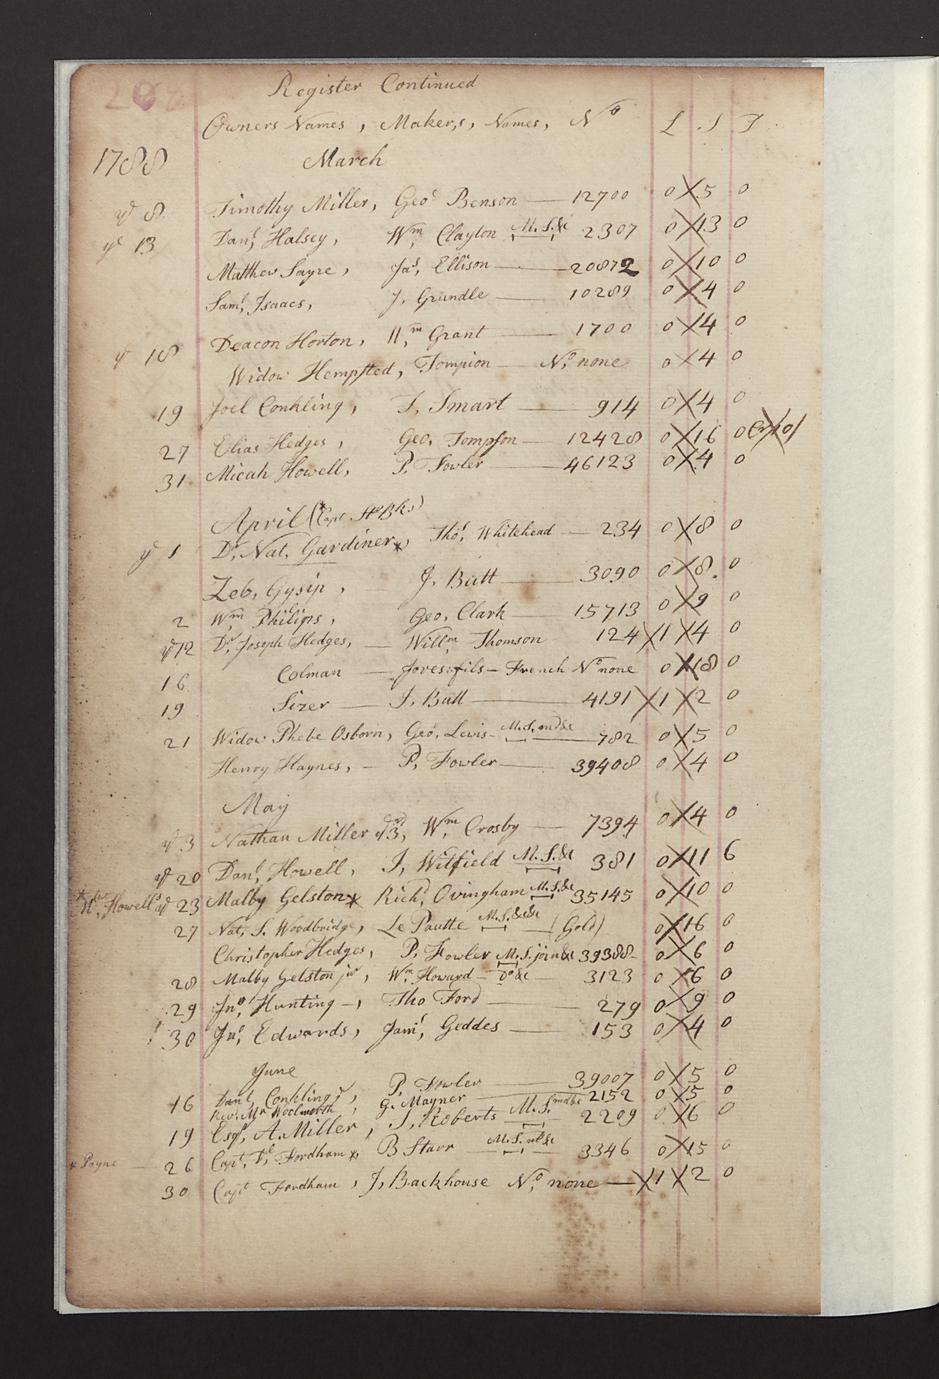 Register Continued
Owners Names, Makers, Names, No £ S
1788 March
ye 8 Timothy Miller, Geo. Benson — 12700 0 5 0
ye 13 Danl, Halsey, Wm Clayton M.S.&c 2307 0 13 0
Matthew Sayre, Jas, Ellison — 20872 0 10 0
Saml, Isaacs, J, Grundle — 10289 0 4 0
ye 18 Deacon Horton, Wm, Grant — 1700 0 4 0
Widow Hempsted, Tompion — No, none 0 4 0
19 Joel Conkling, J, Smart — 914 0 4 0
27 Elias Hedges, Geo, Tompson — 12428 0 16 0
31 Micah Howell, P. Fowler — 46123 0 4 0
April (Capt
ye 1 Dr, Nat, Gardiner*, Thos, Whitehead — 234 0 8 0
Zeb, Gysip, J, Batt — 3090 0 8.
2 Wm Philips, Geo, Clark — 15713 0 9 0
ye 12 Dr, Joseph Hedges, — Willm, Thomson 124 1 4 0
16 Colman — French No none 0 18 0
19 Sizer — J. Ball — 4191 1 2 0
21 Widow Phebe Osborn, Geo, Lewis — M.S. 782 0 5 0
Henry Haynes, — P, Fowler — 39408 0 4 0
May
ye 3 Nathan Miller 3d, Wm, Crosby — 7394 0 4 0
ye 20 Danl, Howell, J, Witfield M.S.&c 381 0 11 6
Howells ye 23 Malby Gelston* Rich, Ovingham M.S.&c 35145 0 10 0
27 Nat, S. Woodbridge, Le Pautte M.S.&c&c (Gold) 0 16 0
Christopher Hedges, P. Fowler M.S. 39388 0 6 0
28 Malby Gelston jur, Wm, Howard — Do &c 3123 0 6 0
29 Jno, Hunting —, Tho Ford — 279 0 9 0
30 Jno, Edwards, Jams, Geddes — 153 0 4 0
June
16 Danl, Conkling, P. Fowler — 39007 0 5 0
Rev. Mr Woolworth, G. Maynar — 2152 0 5 0
19 Esqr, A. Miller, J, Roberts M.S. 2209 0 6 0
* Payne — 26 Capt, Fordham*, B Starr — M.S. 3346 0 15 0
30 Capt Fordham, J, Backhouse No, none — 1 2 0